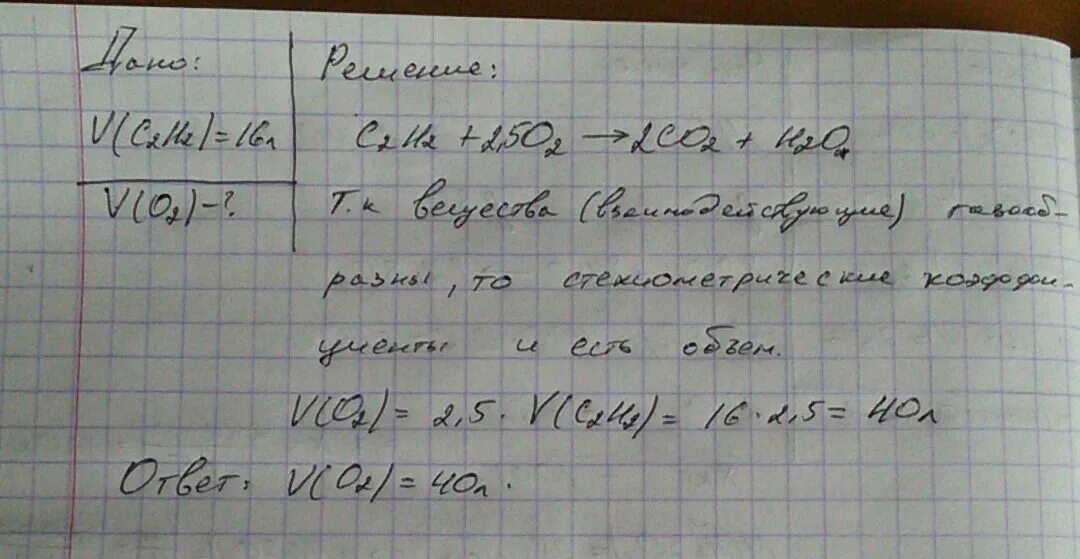 Дано:
V(C2H2)=16л
V(O2)-?
Решение:
C2H2 + 2,5O2 → 2CO2 + H2O.
Т.к вещества (взаимодействующие) газооб-
разны, то стехиометрические коэффи-
циенты и есть объем.
V(O2) = 2,5 · V(C2H2) = 16 · 2,5 = 40л
Ответ: V(O2) = 40л.